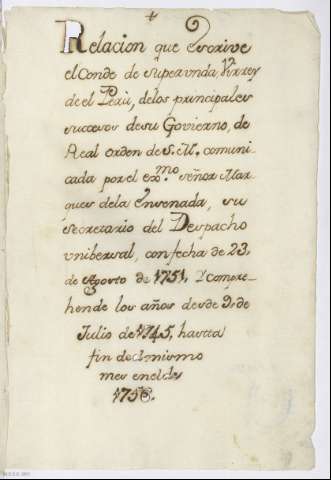 Relacion que escrive
el Conde de superunda Virrey
de el Perù, delos principales
sucesos desu Govierno, de
Real orden de S. M. comuni-
cada por el ex.mo señor Mar-
ques dela Ensenada, su
secretario del Despacho
vnibersal, con fecha de 23,
de Agosto de 1751, Y compre-
hende los años desde 9, de
Julio de 1745, hasta
fin del mismo
mes enel de
1756.